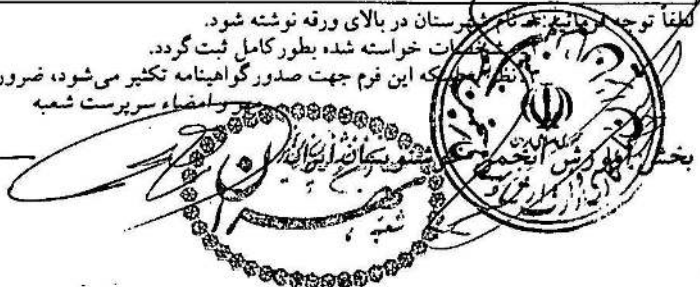 لطفاً توجه فرمائید: نام شهرستان در بالای ورقه نوشته شود.
مشخصات خواسته شده بطور کامل ثبت گردد.
نظر به اینکه این فرم جهت صدور گواهینامه تکثیر می‌شود، ضرور
مهر و امضاء سرپرست شعبه
بخش آموزش انجمن خوشنویسان ایران
شعبه